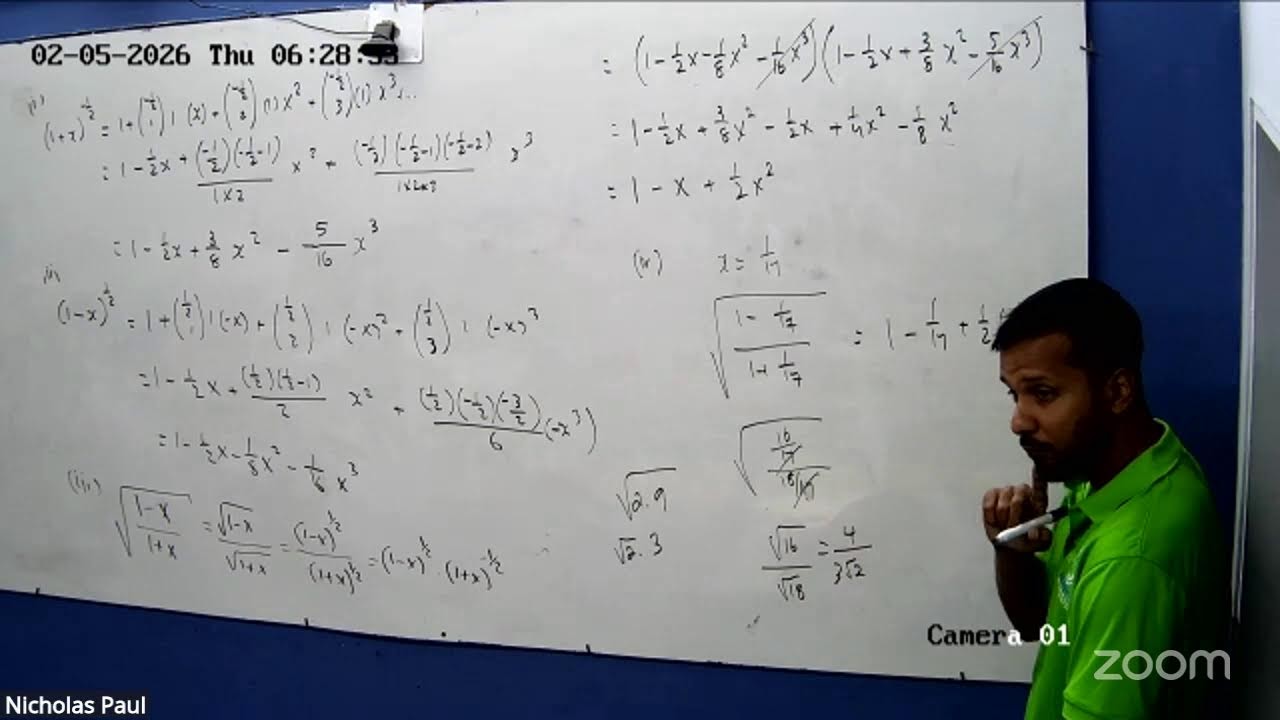 02-05-2026 Thu 06:28:53
(1+x)^{-1/2} = 1 + \binom{-1/2}{1} 1 (x) + \binom{-1/2}{2} (1) x^2 + \binom{-1/2}{3} (1) x^3 ...
= 1 - 1/2 x + (-1/2)(-1/2-1)/(1x2) x^2 + (-1/2)(-1/2-1)(-1/2-2)/(1x2x3) x^3
= 1 - 1/2 x + 3/8 x^2 - 5/16 x^3
(ii)
(1-x)^{1/2} = 1 + \binom{1/2}{1} 1 (-x) + \binom{1/2}{2} 1 (-x)^2 + \binom{1/2}{3} 1 (-x)^3
= 1 - 1/2 x + (1/2)(1/2-1)/2 x^2 + (1/2)(-1/2)(-3/2)/6 (-x^3)
= 1 - 1/2 x - 1/8 x^2 - 1/16 x^3
(iii) √((1-x)/(1+x)) = √(1-x)/√(1+x) = (1-x)^{1/2}/(1+x)^{1/2} = (1-x)^{1/2} . (1+x)^{-1/2}
= (1 - 1/2 x - 1/8 x^2 - 1/16 x^3)(1 - 1/2 x + 3/8 x^2 - 5/16 x^3)
= 1 - 1/2 x + 3/8 x^2 - 1/2 x + 1/4 x^2 - 1/8 x^2
= 1 - x + 1/2 x^2
(iv) x = 1/17
√((1 - 1/17)/(1 + 1/17)) = 1 - 1/17 + 1/2
√((16/17)/(18/17))
√2.9
√2 . 3
√16/√18 = 4/3√2
Camera 01
zoom
Nicholas Paul